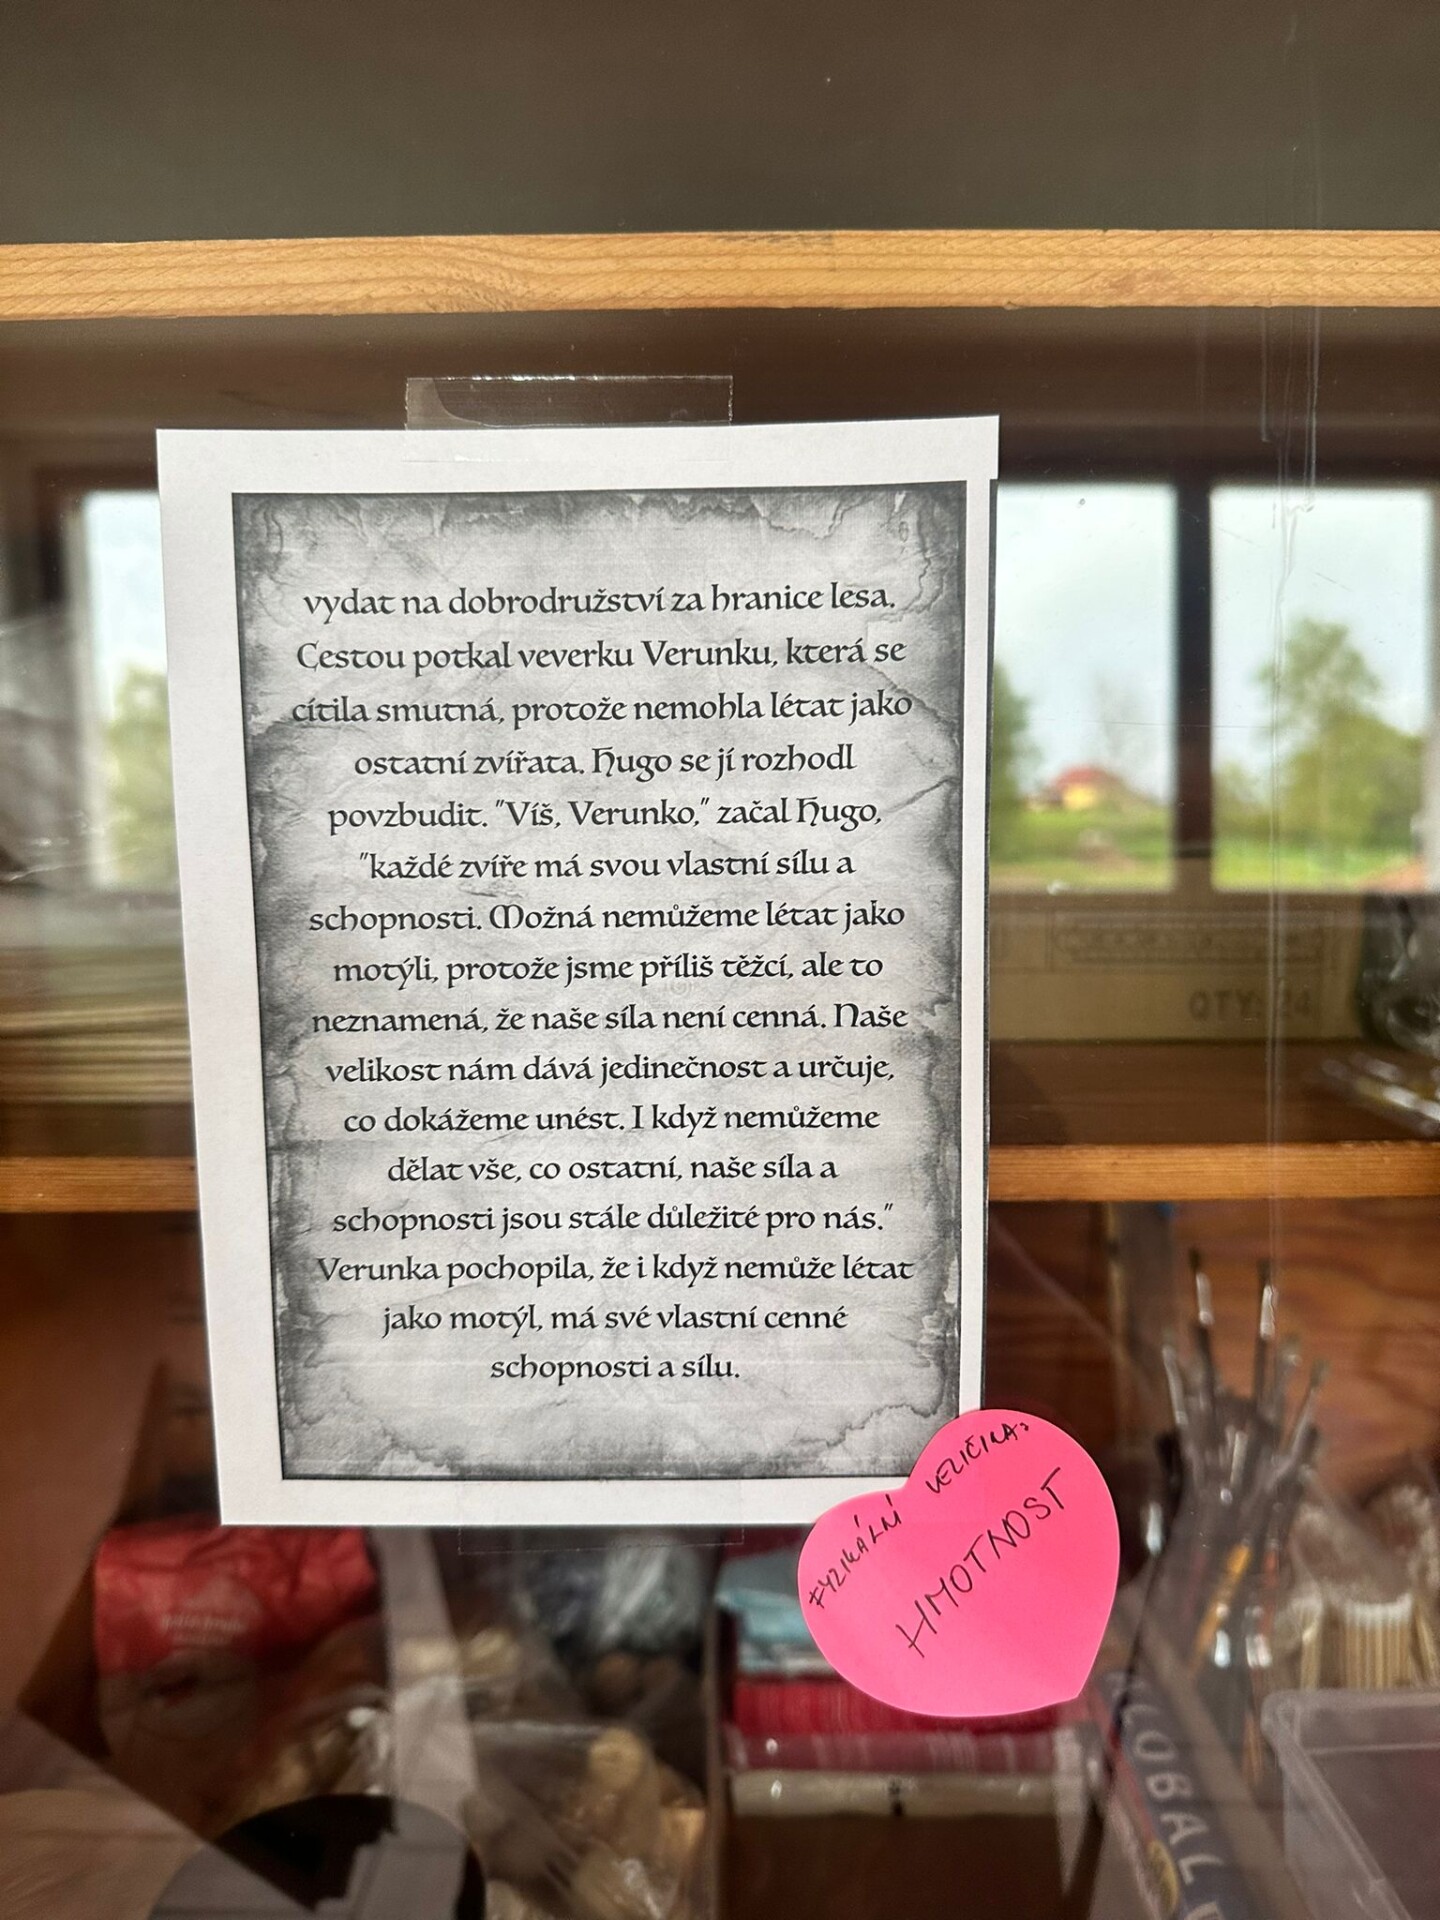 vydat na dobrodružství za hranice lesa.
Cestou potkal veverku Verunku, která se
cítila smutná, protože nemohla létat jako
ostatní zvířata. Hugo se jí rozhodl
povzbudit. "Víš, Verunko," začal Hugo,
"každé zvíře má svou vlastní sílu a
schopnosti. Možná nemůžeme létat jako
motýli, protože jsme příliš těžcí, ale to
neznamená, že naše síla není cenná. Naše
velikost nám dává jedinečnost a určuje,
co dokážeme unést. I když nemůžeme
dělat vše, co ostatní, naše síla a
schopnosti jsou stále důležité pro nás."
Verunka pochopila, že i když nemůže létat
jako motýl, má své vlastní cenné
schopnosti a sílu.
FYZIKÁLNÍ VELIČINA:
HMOTNOST
QTY: 24
GLOBAL